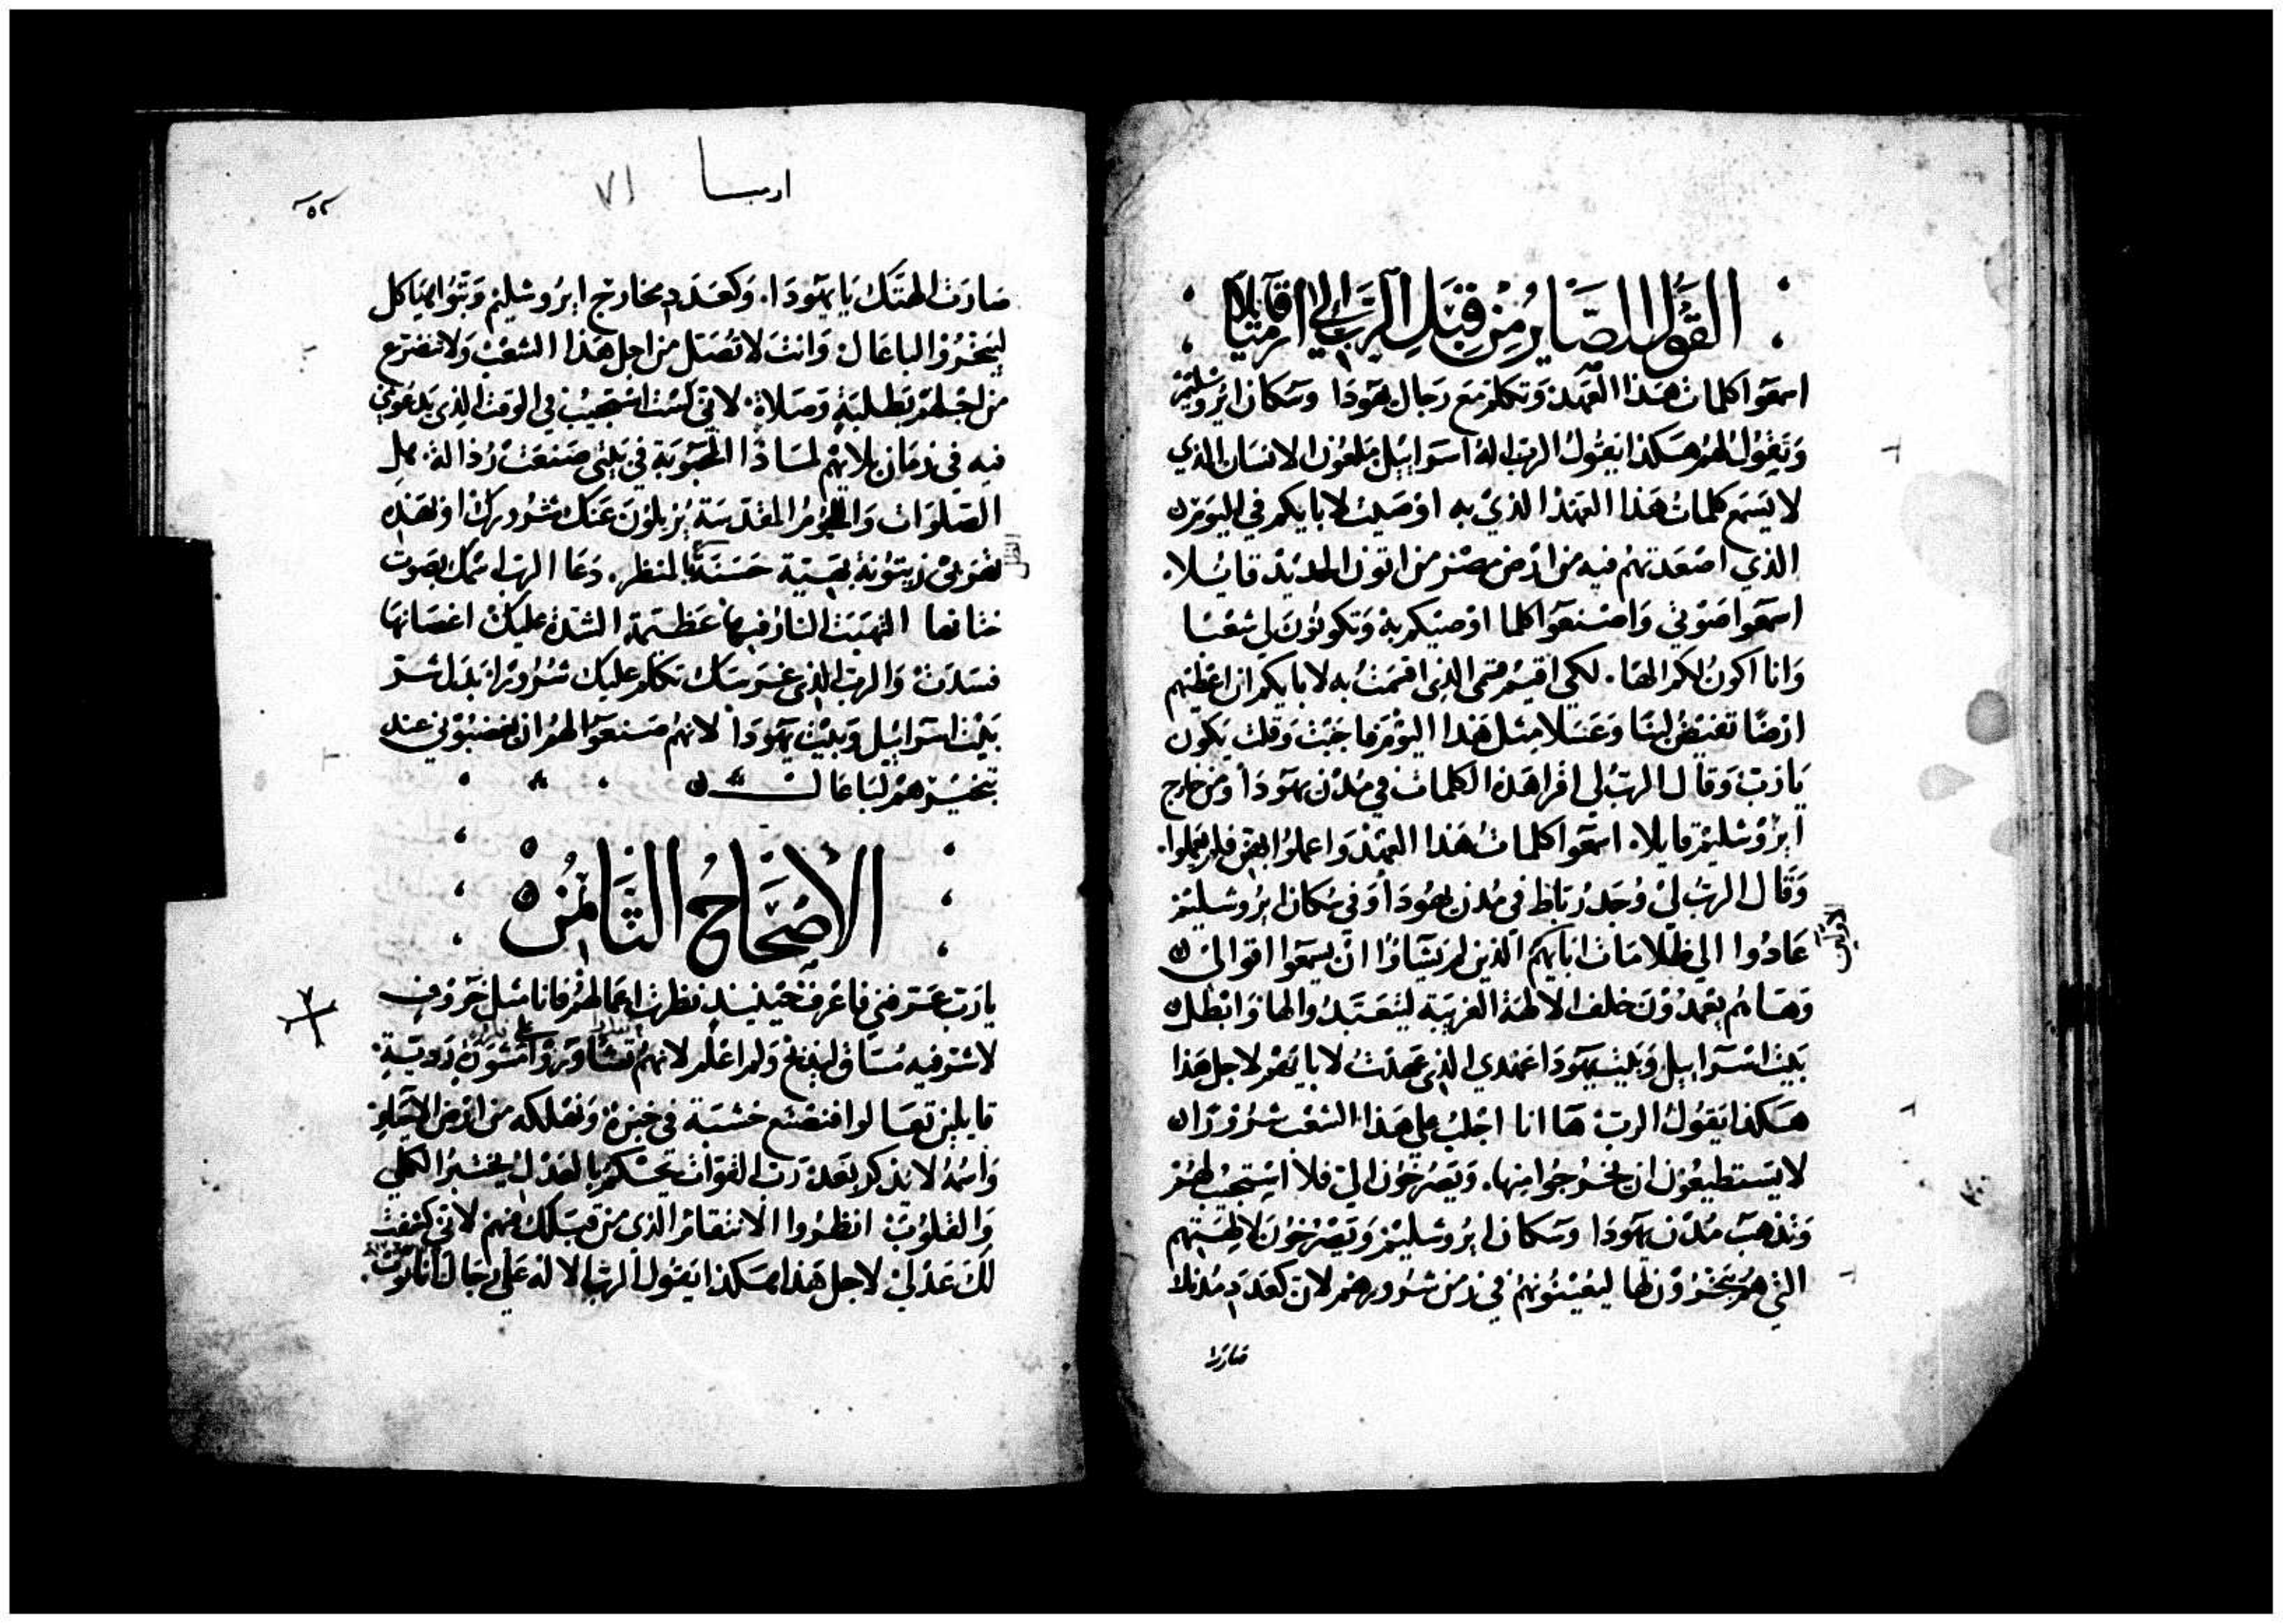 القول الصاير من قبل الرب الي ارميا قايلا
اسمعوا كلمات هذا العهد وتكلم مع رجال يهودا وسكان ايروشليم
وتقول لهم هكذا يقول الرب اله اسرابيل ملعون الانسان الذي
لا يسمع كلمات هذا العهد الذي به اوصيت لابايكم في اليوم
الذي اصعدتهم فيه من ارض مصر من اتون الحديد قايلا.
اسمعوا صوتي واصنعوا كلما اوصيكم به وتكونون لي شعبا
وانا اكون لكم الها. لكي اقيم قسمي الذي اقسمت به لابايكم ان اعطيهم
ارضا تفيض لبنا وعسلا مثل هذا اليوم فاجبت وقلت يكون
يا رب وقال الرب لي اقرا هذه الكلمات في مدن يهودا ومن خارج
ايروشليم قايلا. اسمعوا كلمات هذا العهد واعملوا بها فلم يعملوا.
وقال الرب لي وجد رباط في مدن يهودا وفي سكان ايروشليم
عادوا الي ظلامات ابايهم الاولين الذين لم يشاوا ان يسمعوا اقوالي
وها هم يعمدون خلف الالهة الغريبة ليتعبدوا لها وابطل
بيت اسرابيل وبيت يهودا عهدي الذي عهدت لابايهم لاجل هذا
هكذا يقول الرب ها انا اجلب علي هذا الشعب شرورا
لا يستطيعون ان يخرجوا منها. ويصرخون الي فلا استجيب لهم
وتذهب مدن يهودا وسكان ايروشليم ويصرخون لالهتهم
التي هم يبخرون لها ليعينوهم في زمن شرورهم لان كعدد مدنك
صارت
ارميا ٧١
٥٢
صارت الهتك يا يهودا. وكعدد مخارج ايروشليم وتتوا هياكل
ليبخروا لباعال وانت لا تصل من اجل هذا الشعب ولا تضرع
من اجلهم بطلبة وصلاة. لاني لست استجيب في الوقت الذي يدعوني
فيه في زمان بلاتهم لماذا المحبوبة في بيتي صنعت رذالة. هل
الصلوات واللحوم المقدسة يزيلون عنك شرورك او بهذه
تهربي زيتونة بهية حسنة بالمنظر. دعا الرب اسمك بصوت
ختانها التهبت النار فيها عظيمة الشدة عليك اغصانها
فسدت والرب الذي غرسك تكلم عليك شرورا بدل شر
بيت اسرابيل وبيت يهودا لانهم صنعوا لهم ان يغضبوني عند
تبخيرهم لباعال
الاصحاح الثامن
يا رب عرفني فاعرف حينيذ نظرت اعمالهم فانا مثل خروف
لا شر فيه مساق ليذبح ولم اعلم لانهم تشاوروا مشورة ردية
قايلين تعالوا فنضع خشبة في خبزه ونهلكه من ارض الاحيا
واسمه لا يذكر بعد رب القوات تحكم بالعدل يختبر الكلي
والقلوب انظروا الانتقام الذي من قبلك منهم لاني كشفت
لك عدلي لاجل هذا هكذا يقول الرب الاله علي رجال اناتوت